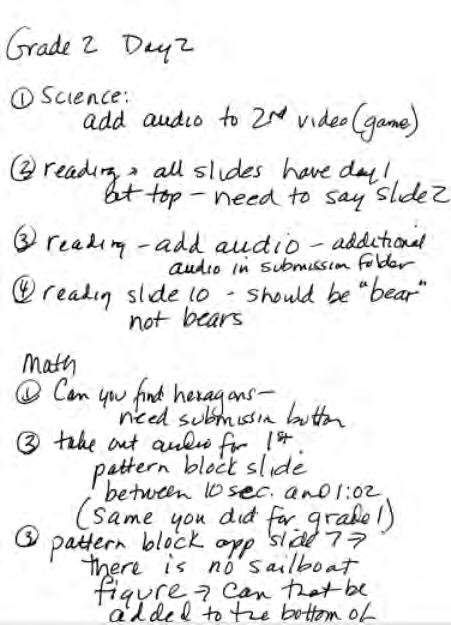 Grade 2 Day 2
① Science:
add audio to 2nd video (game)
② reading → all slides have day 1
at top - need to say slide 2
③ reading - add audio - additional
audio in submission folder
④ reading slide 10 - should be "bear"
not bears
Math
① Can you find hexagons -
need submission button
② take out audio for 1st
pattern block slide
between 10 sec. and 1:02
(Same you did for grade 1)
③ pattern block app slide 7 →
there is no sailboat
figure → Can that be
added to the bottom of